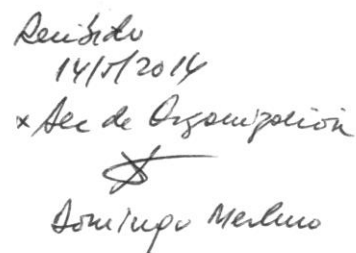 Recibido
14/5/2014
x Sec de Organización
Domingo Merlino